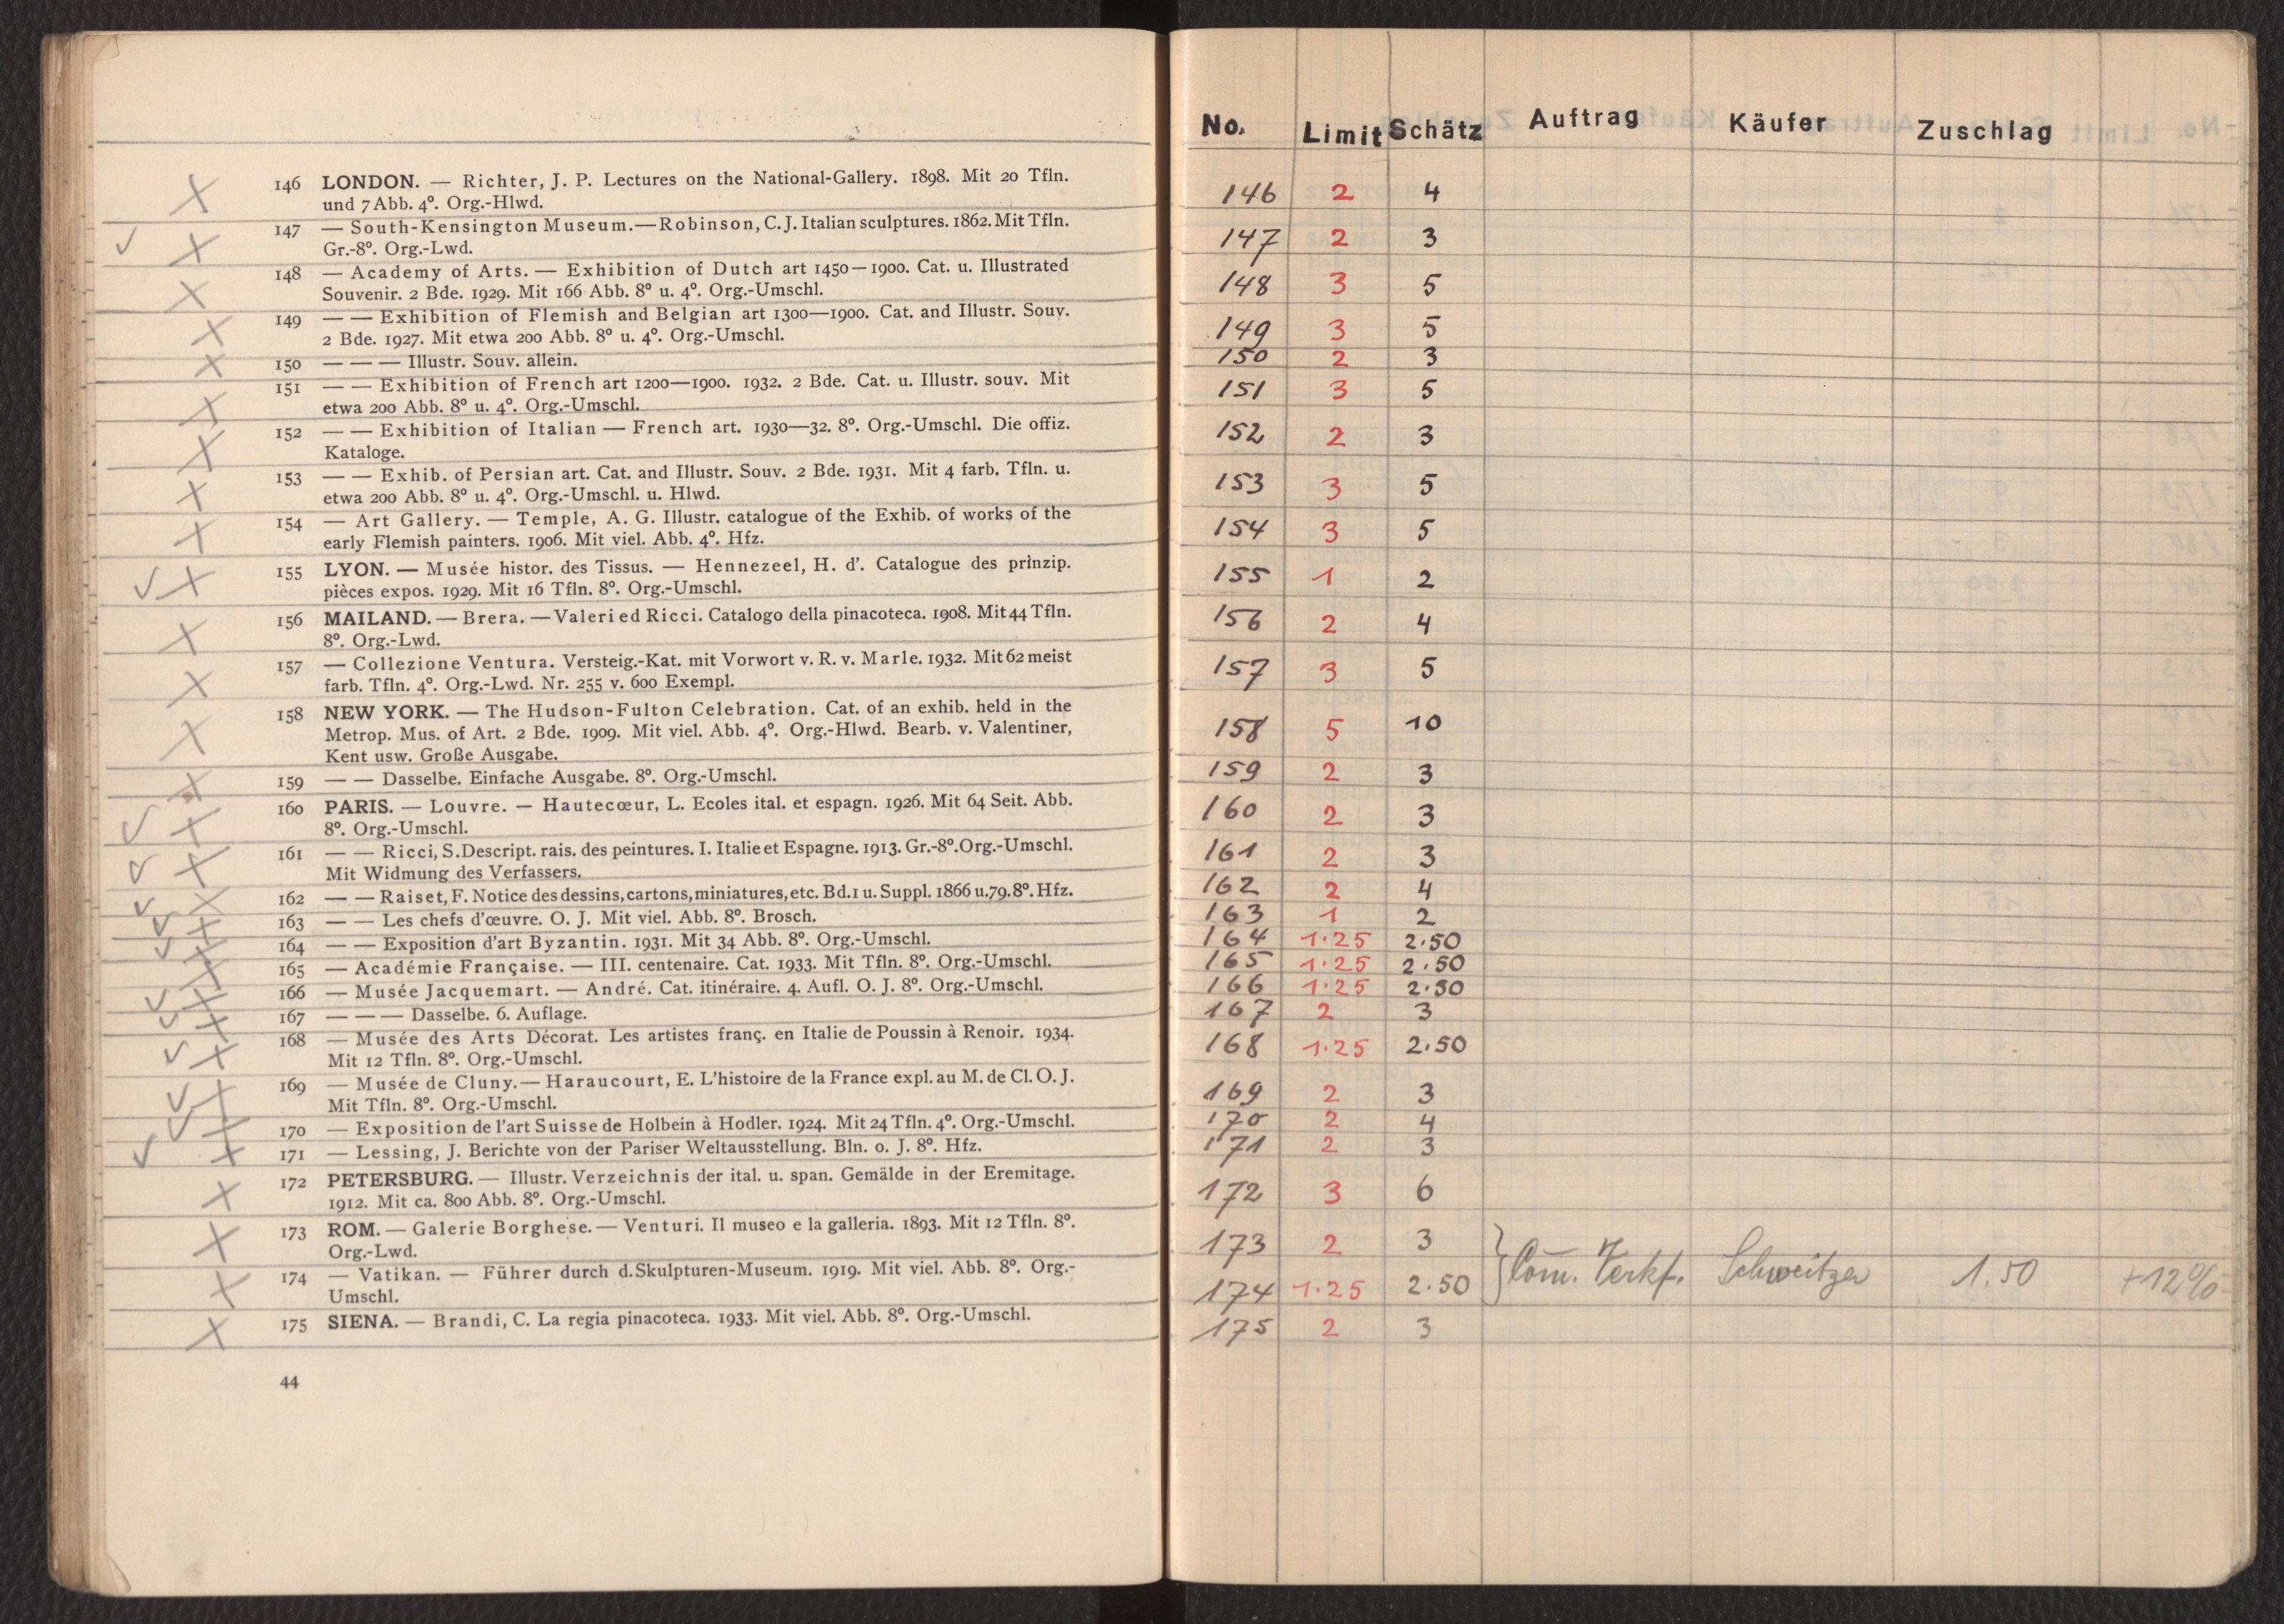 146 LONDON. — Richter, J. P. Lectures on the National-Gallery. 1898. Mit 20 Tfln.
und 7 Abb. 4°. Org.-Hlwd.
147 — South-Kensington Museum.—Robinson, C. J. Italian sculptures. 1862. Mit Tfln.
Gr.-8°. Org.-Lwd.
148 — Academy of Arts. — Exhibition of Dutch art 1450—1900. Cat. u. Illustrated
Souvenir. 2 Bde. 1929. Mit 166 Abb. 8° u. 4°. Org.-Umschl.
149 — — Exhibition of Flemish and Belgian art 1300—1900. Cat. and Illustr. Souv.
2 Bde. 1927. Mit etwa 200 Abb. 8° u. 4°. Org.-Umschl.
150 — — — Illustr. Souv. allein.
151 — — Exhibition of French art 1200—1900. 1932. 2 Bde. Cat. u. Illustr. souv. Mit
etwa 200 Abb. 8° u. 4°. Org.-Umschl.
152 — — Exhibition of Italian — French art. 1930—32. 8°. Org.-Umschl. Die offiz.
Kataloge.
153 — — Exhib. of Persian art. Cat. and Illustr. Souv. 2 Bde. 1931. Mit 4 farb. Tfln. u.
etwa 200 Abb. 8° u. 4°. Org.-Umschl. u. Hlwd.
154 — Art Gallery. — Temple, A. G. Illustr. catalogue of the Exhib. of works of the
early Flemish painters. 1906. Mit viel. Abb. 4°. Hfz.
155 LYON. — Musée histor. des Tissus. — Hennezeel, H. d'. Catalogue des prinzip.
pièces expos. 1929. Mit 16 Tfln. 8°. Org.-Umschl.
156 MAILAND. — Brera. — Valeri ed Ricci. Catalogo della pinacoteca. 1908. Mit 44 Tfln.
8°. Org.-Lwd.
157 — Collezione Ventura. Versteig.-Kat. mit Vorwort v. R. v. Marle. 1932. Mit 62 meist
farb. Tfln. 4°. Org.-Lwd. Nr. 255 v. 600 Exempl.
158 NEW YORK. — The Hudson-Fulton Celebration. Cat. of an exhib. held in the
Metrop. Mus. of Art. 2 Bde. 1909. Mit viel. Abb. 4°. Org.-Hlwd. Bearb. v. Valentiner,
Kent usw. Große Ausgabe.
159 — — Dasselbe. Einfache Ausgabe. 8°. Org.-Umschl.
160 PARIS. — Louvre. — Hautecœur, L. Ecoles ital. et espagn. 1926. Mit 64 Seit. Abb.
8°. Org.-Umschl.
161 — — Ricci, S. Descript. rais. des peintures. I. Italie et Espagne. 1913. Gr.-8°. Org.-Umschl.
Mit Widmung des Verfassers.
162 — — Raiset, F. Notice des dessins, cartons, miniatures, etc. Bd. 1 u. Suppl. 1866 u. 79. 8°. Hfz.
163 — — Les chefs d'œuvre. O. J. Mit viel. Abb. 8°. Brosch.
164 — — Exposition d'art Byzantin. 1931. Mit 34 Abb. 8°. Org.-Umschl.
165 — Académie Française. — III. centenaire. Cat. 1933. Mit Tfln. 8°. Org.-Umschl.
166 — Musée Jacquemart. — André. Cat. itinéraire. 4. Aufl. O. J. 8°. Org.-Umschl.
167 — — — Dasselbe. 6. Auflage.
168 — Musée des Arts Décorat. Les artistes franç. en Italie de Poussin à Renoir. 1934.
Mit 12 Tfln. 8°. Org.-Umschl.
169 — Musée de Cluny.— Haraucourt, E. L'histoire de la France expl. au M. de Cl. O. J.
Mit Tfln. 8°. Org.-Umschl.
170 — Exposition de l'art Suisse de Holbein à Hodler. 1924. Mit 24 Tfln. 4°. Org.-Umschl.
171 — Lessing, J. Berichte von der Pariser Weltausstellung. Bln. o. J. 8°. Hfz.
172 PETERSBURG. — Illustr. Verzeichnis der ital. u. span. Gemälde in der Eremitage.
1912. Mit ca. 800 Abb. 8°. Org.-Umschl.
173 ROM. — Galerie Borghese. — Venturi. Il museo e la galleria. 1893. Mit 12 Tfln. 8°.
Org.-Lwd.
174 — Vatikan. — Führer durch d. Skulpturen-Museum. 1919. Mit viel. Abb. 8°. Org.-
Umschl.
175 SIENA. — Brandi, C. La regia pinacoteca. 1933. Mit viel. Abb. 8°. Org.-Umschl.
44
No. Limit Schätz Auftrag Käufer Zuschlag
146 2 4
147 2 3
148 3 5
149 3 5
150 2 3
151 3 5
152 2 3
153 3 5
154 3 5
155 1 2
156 2 4
157 3 5
158 5 10
159 2 3
160 2 3
161 2 3
162 2 4
163 1 2
164 1.25 2.50
165 1.25 2.50
166 1.25 2.50
167 2 3
168 1.25 2.50
169 2 3
170 2 4
171 2 3
172 3 6
173 2 3
174 1.25 2.50 Com. Verkf. Schweitzer 1.50 +12%
175 2 3